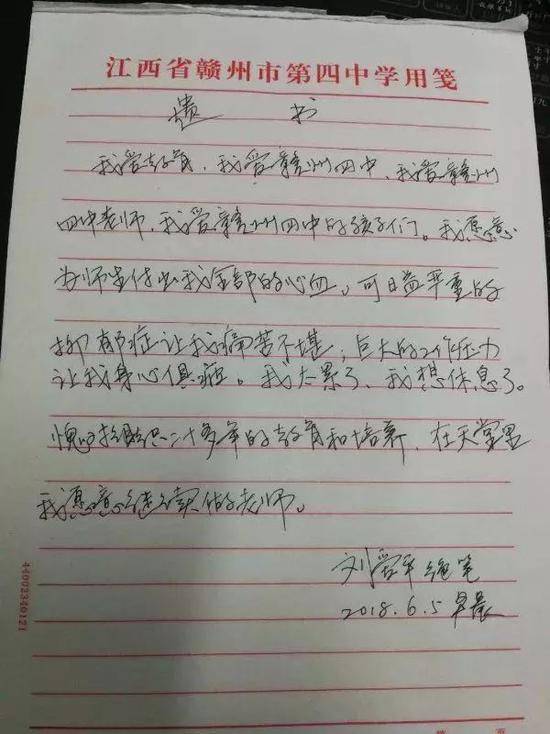 江西省赣州市第四中学用笺
遗 书
我爱教育,我爱赣州四中,我爱赣州
四中老师,我爱赣州四中的孩子们。我愿意
为师生付出我全部的心血。可日益严重的
抑郁症让我痛苦不堪;巨大的工作压力
让我身心俱疲。我太累了,我想休息了。
愧对组织二十多年的教育和培养,在天堂里
我愿意继续做老师。
刘爱平绝笔
2018.6.5早晨
44002340121